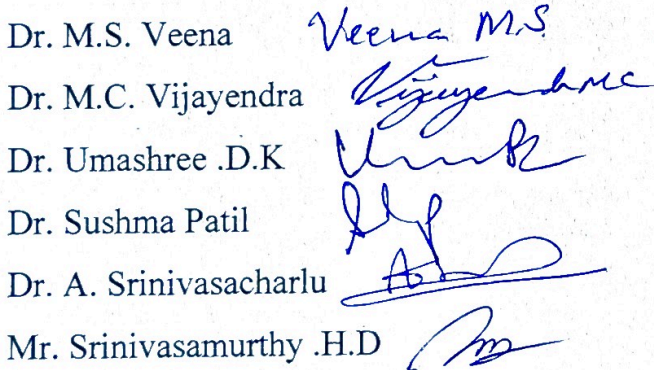 Dr. M.S. Veena Veena M.S.
Dr. M.C. Vijayendra Vijayendra MC
Dr. Umashree .D.K
Dr. Sushma Patil
Dr. A. Srinivasacharlu
Mr. Srinivasamurthy .H.D